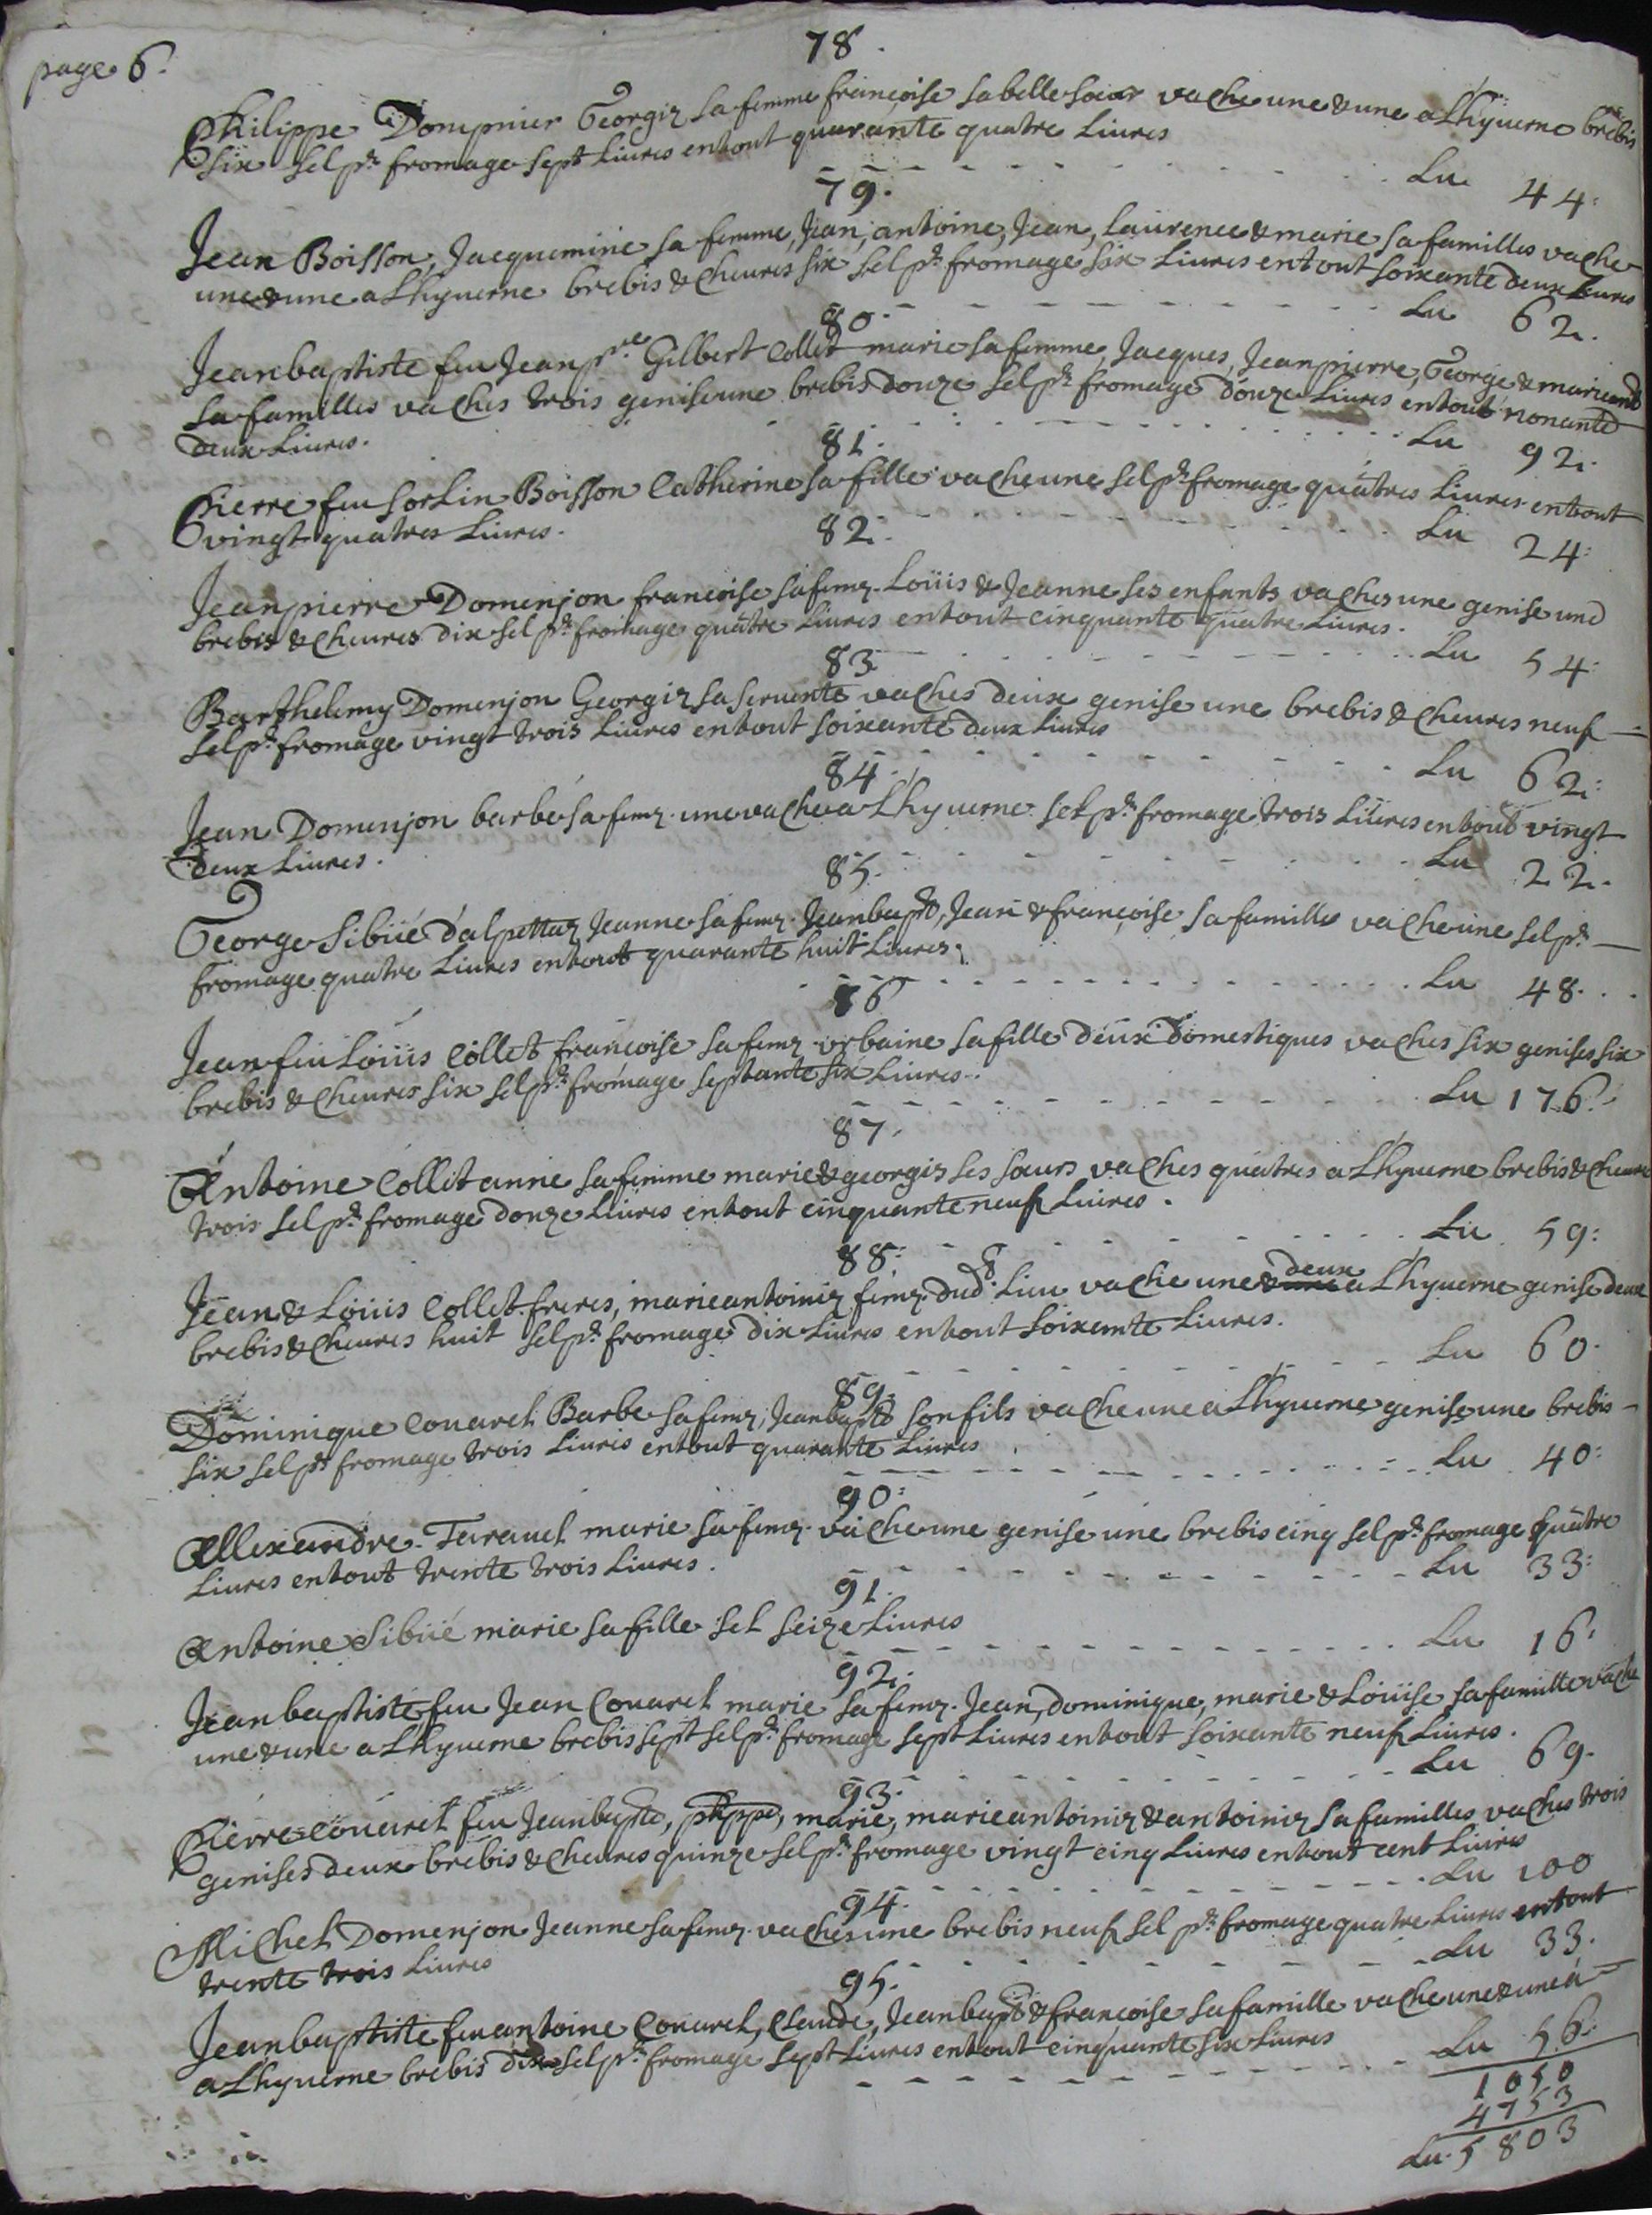 page 6.
78.
Philippe Dompnier Georgiz sa femme francoise sa belle soeur vache une & une a Lhyuerne brebis
six sel pr fromage sept Liures en tout quarante quatre Liures
Liu 44:
79.
Jean Boisson, Jacquemine sa femme, Jean, antoine, Jean, Laurence & marie sa familles vache
une & une a Lhyuerne brebis & cheures six sel pr fromage six Liures en tout soixante deux Liures
Liu 62.
80.
Jeanbaptiste feu Jean pre Gilbert Collet marie sa femme, Jacques, Jeanpierre, George & marie
sa familles vaches trois genise une brebis douze sel pr fromage douze Liures en tout nonante
deux Liures.
Liu 92.
81.
Pierre feu sorlin Boisson Catherine sa fille vache une sel pr fromage quatres Liures en tout
vingt quatres Liures.
Liu 24:
82.
Jeanpierre Domenjon francoise sa femz. Loüis & Jeanne ses enfants vaches une genise une
brebis & cheures dix sel pr fromage quatre Liures en tout cinquante quatre Liures.
Liu 54.
83
Barthelemy Domenjon Georgiz sa seruente vaches deux genise une brebis & cheures neuf
sel pr fromage vingt trois Liures en tout soixante deux Liures
Liu 62:
84.
Jean Domenjon barbe sa femz. une vache a Lhyuerne sel pr fromage trois Liures en tout vingt
deux Liures.
Liu 22.
85.
George Sibüé d'alpettaz Jeanne sa femz. Jeanbapte, Jean & françoise sa familles vache une sel pr
fromage quatre Liures en tout quarante huit Liures.
Liu 48.
86
Jean feu Loüis Collet francoise sa femz urbaine sa fille deux domestiques vaches six genises six
brebis & cheures six sel pr fromage septante six Liures.
Liu 176.
87.
Antoine Collet anne sa femme marie & georgiz ses soeurs vaches quatres a Lhyuerne brebis & cheures
trois sel pr fromage douze Liures en tout cinquante neuf Liures.
Liu 59:
88.
Jean & Loüis Collet freres, marie antoiniz femz. dud. Liu vache une & deux a Lhyuerne genise deux
brebis & cheures huit sel pr fromage dix Liures en tout soixante Liures.
Liu 60.
89.
Dominique Couarel Barbe sa femz, Jeanbapte son fils vache une a Lhyuerne genise une brebis
six sel pr fromage trois Liures en tout quarante Liures
Liu 40:
90:
Allexandre Tarauel marie sa femz. vache une genise une brebis cinq sel pr fromage quatre
Liures en tout trente trois Liures.
Liu 33:
91.
Antoine Sibüé marie sa fille sel seize Liures
Liu 16.
92.
Jeanbaptiste feu Jean Couarel marie sa femz. Jean, dominique, marie & Loüise sa famille vache
une & une a Lhyuerne brebis sept sel pr fromage sept Liures en tout soixante neuf Liures.
Liu 69.
93.
Pierre Couarel feu Jeanbapte, phippe, marie, marie antoiniz & antoiniz sa familles vaches trois
genises deux brebis & cheures quinze sel pr fromage vingt cinq Liures en tout cent Liures
Liu 100
94.
Michel Domenjon Jeanne sa femz. vaches une brebis neuf sel pr fromage quatre Liures en tout
trente trois Liures
Liu 33.
95.
Jeanbaptiste feu antoine Couarel, Claude, Jeanbapte & francoise sa famille vache une & une a
a Lhyuerne brebis dix sel pr fromage sept Liures en tout cinquante six Liures
Liu 56.
1050
4753
Liu. 5803